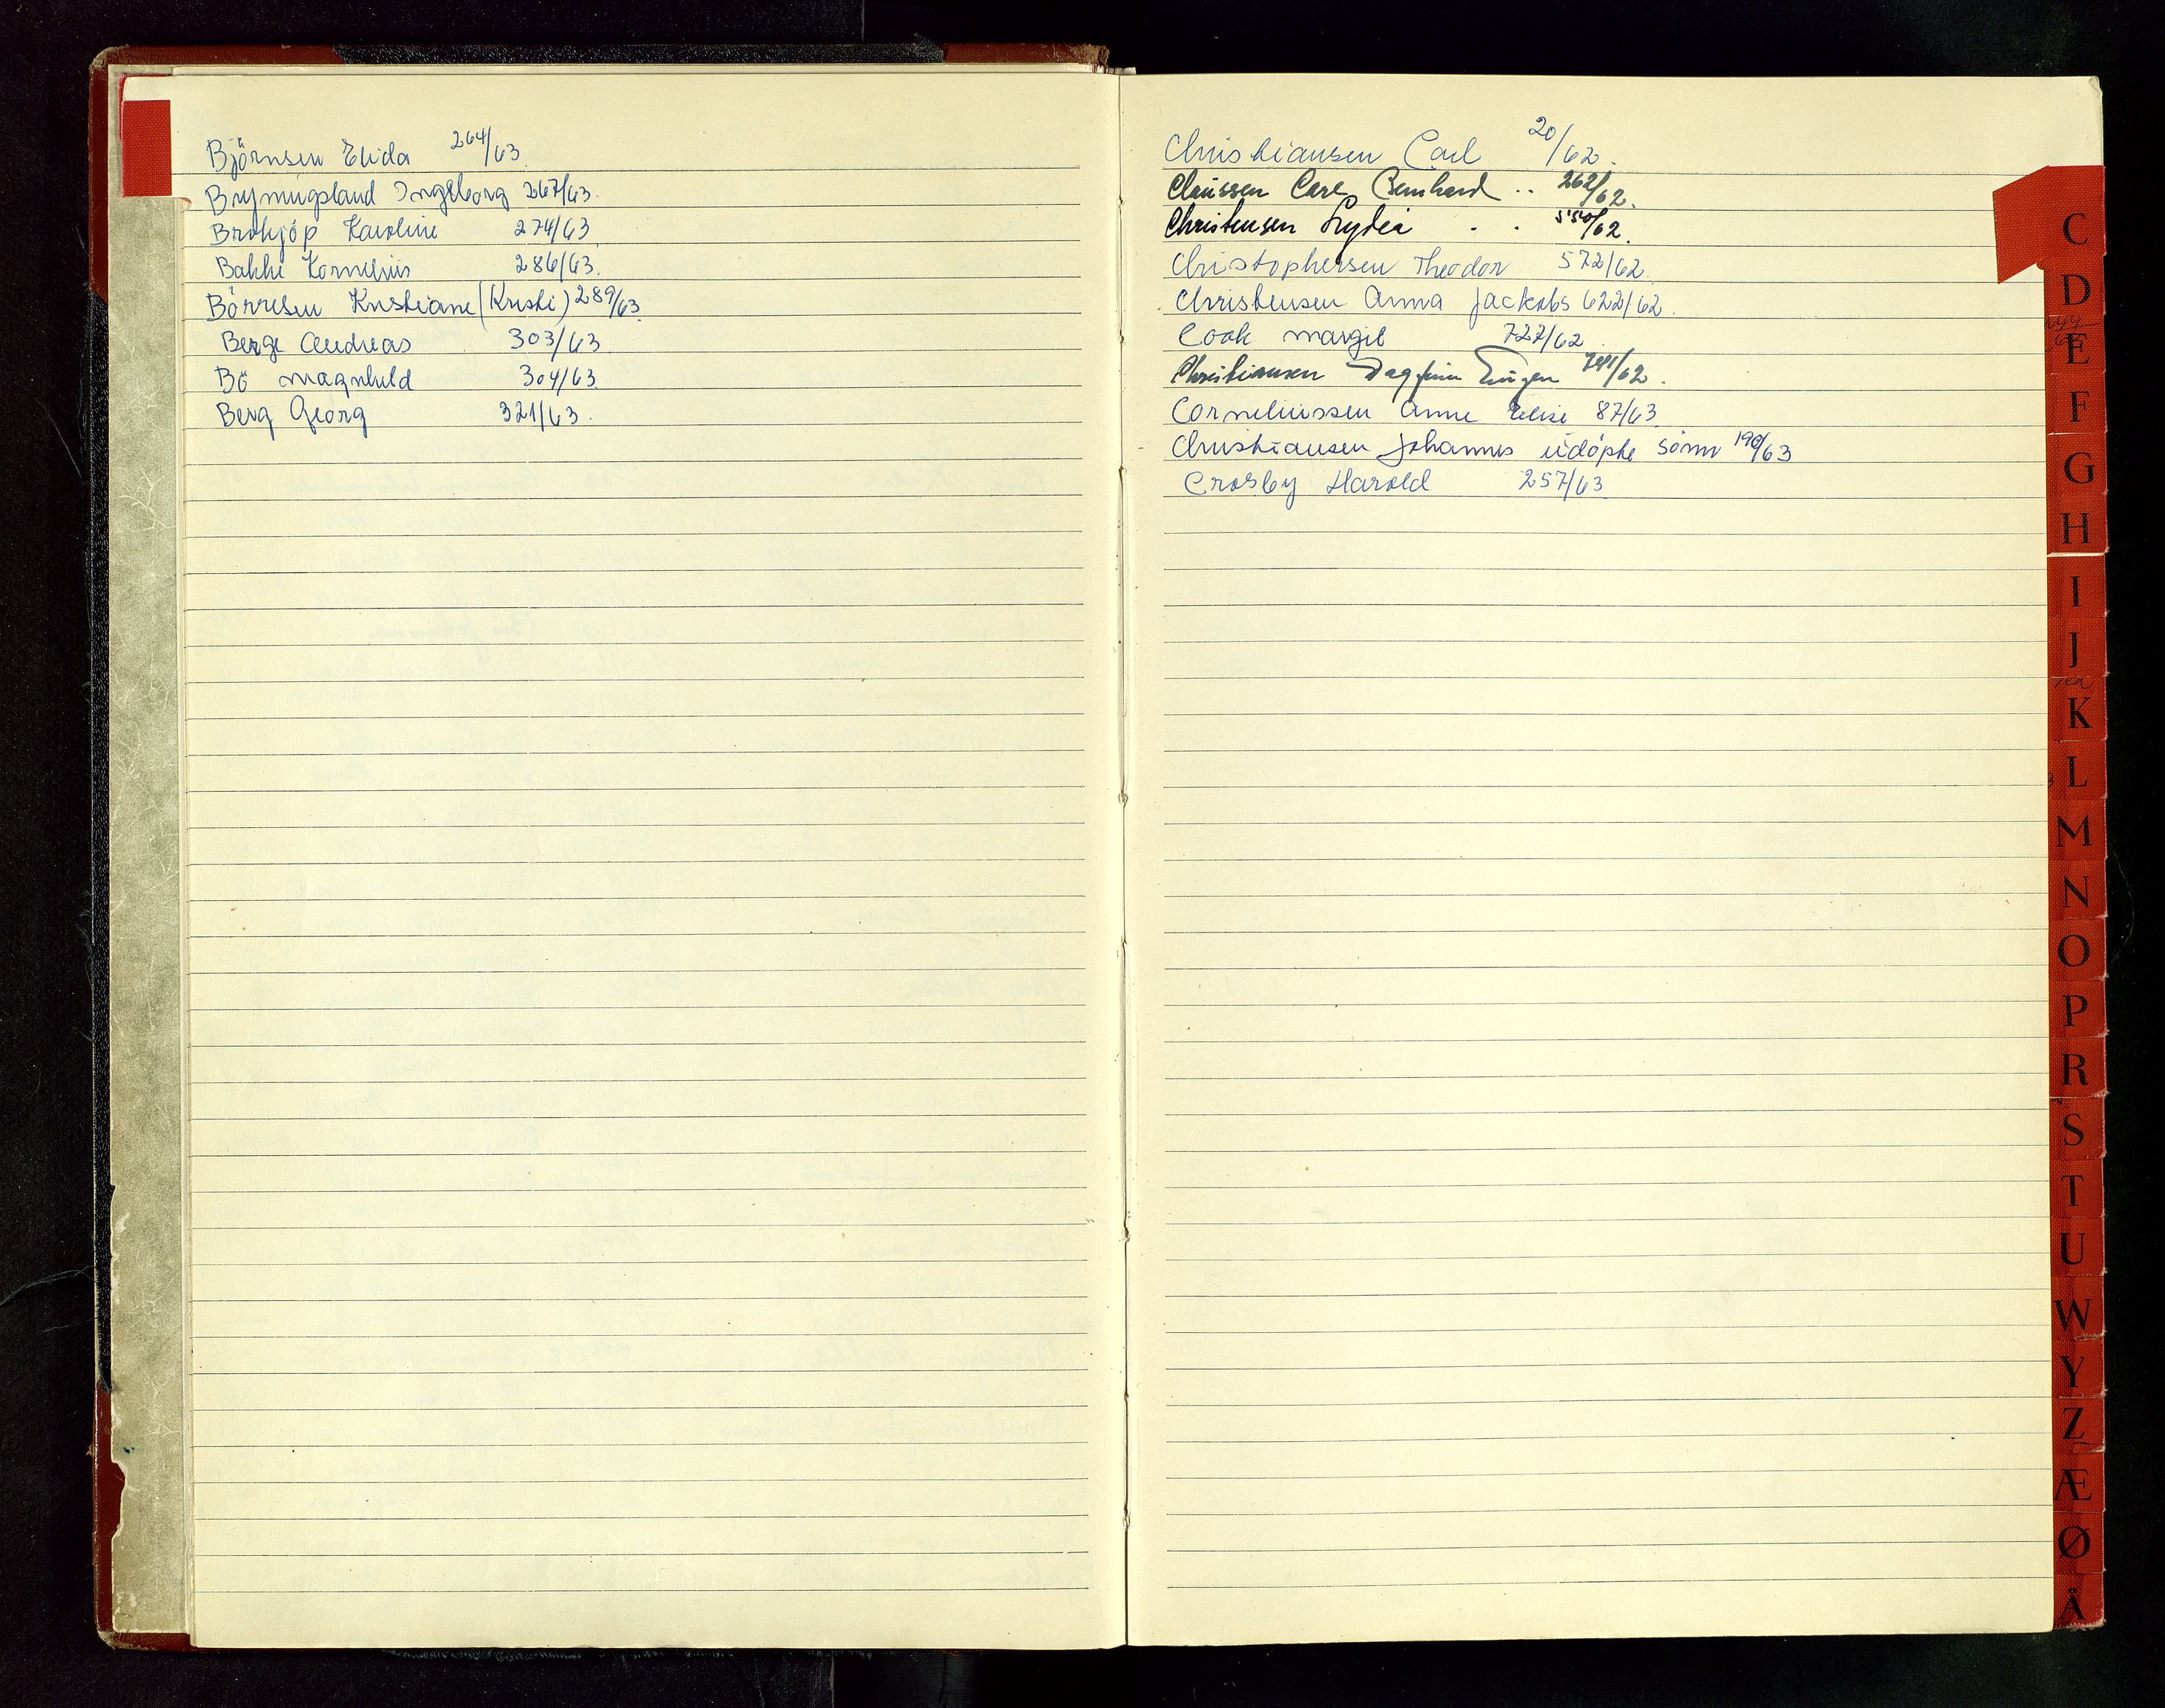 Björnsen Elida 264/63
Brynnigsland Ingeborg 267/63.
Brokjöp Karoline 274/63
Bakke Kornelius 286/63.
Börresen Kristiane (Kristi) 289/63
Berge Andreas 303/63
Bö Magnhild 304/63
Berg Georg 321/63.
Christiansen Carl 20/62.
Claussen Carl Bernhard .. 262/62.
Christensen Lydia . . 550/62.
Christophersen Theodor 572/62.
Christensen Anna Jackobs 622/62.
Cook Margit 727/62.
Christiansen Dagfinn Eugen 741/62.
Corneliussen Anne Elise 87/63
Christiansen Johannes udöpte sönn 190/63
Crosby Harold 257/63
C
D
E
F
G
H
I
J
K
L
M
N
O
P
R
S
T
U
W
Y
Z
Æ
Ø
Å